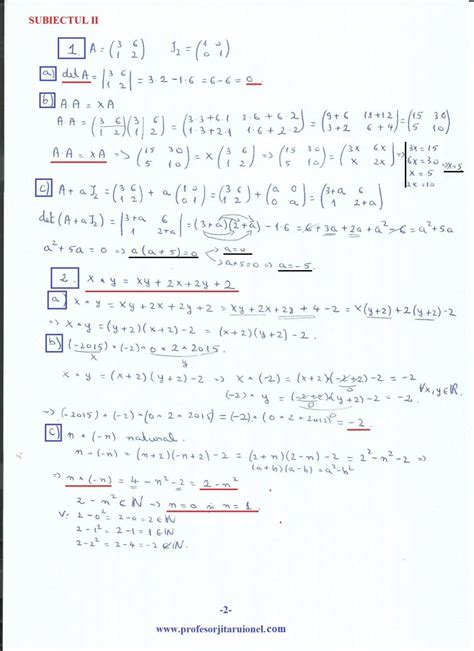 SUBIECTUL II
1. A = (3 6 / 1 2) I₂ = (1 0 / 0 1)
a) det A = |3 6 / 1 2| = 3·2-1·6 = 6-6 = 0.
b) A·A = xA
A·A = (3 6 / 1 2)(3 6 / 1 2) = (3·3+6·1 3·6+6·2 / 1·3+2·1 1·6+2·2) = (9+6 18+12 / 3+2 6+4) = (15 30 / 5 10)
A·A = xA => (15 30 / 5 10) = x(3 6 / 1 2) => (15 30 / 5 10) = (3x 6x / x 2x) => 3x = 15
6x = 30 => x = 5
x = 5
2x = 10
c) A + aI₂ = (3 6 / 1 2) + a(1 0 / 0 1) = (3 6 / 1 2) + (a 0 / 0 a) = (3+a 6 / 1 2+a)
det(A+aI₂) = |3+a 6 / 1 2+a| = (3+a)(2+a) - 1·6 = 6+3a+2a+a²-6 = a²+5a
a²+5a = 0 => a(a+5) = 0 => a = 0
=> a+5=0 => a = -5.
2. x * y = xy + 2x + 2y + 2
a) x * y = xy + 2x + 2y + 2 = xy + 2x + 2y + 4 - 2 = x(y+2) + 2(y+2) - 2
=> x * y = (y+2)(x+2) - 2 = (x+2)(y+2) - 2.
b) (-2015) * (-2) * 0 * 2 * 2015.
x
x * y = (x+2)(y+2) - 2 => x * (-2) = (x+2)(-2+2) - 2 = -2
(-2) * y = (-2+2)(y+2) - 2 = -2 ∀x,y∈ℝ
0
=> (-2015) * (-2) * (0 * 2 * 2015) = (-2) * (0 * 2 * 2015) = -2.
c) n * (-n) natural.
n * (-n) = (n+2)(-n+2) - 2 = (2+n)(2-n) - 2 = 2² - n² - 2 =>
(a+b)(a-b) = a²-b²
=> n * (-n) = 4 - n² - 2 = 2 - n²
2 - n² ∈ ℕ => n=0 și n=1.
V: 2 - 0² = 2-0 = 2 ∈ ℕ
2 - 1² = 2-1 = 1 ∈ ℕ
2 - 2² = 2-4 = -2 ∉ ℕ.
-2-
www.profesorjitaruionel.com